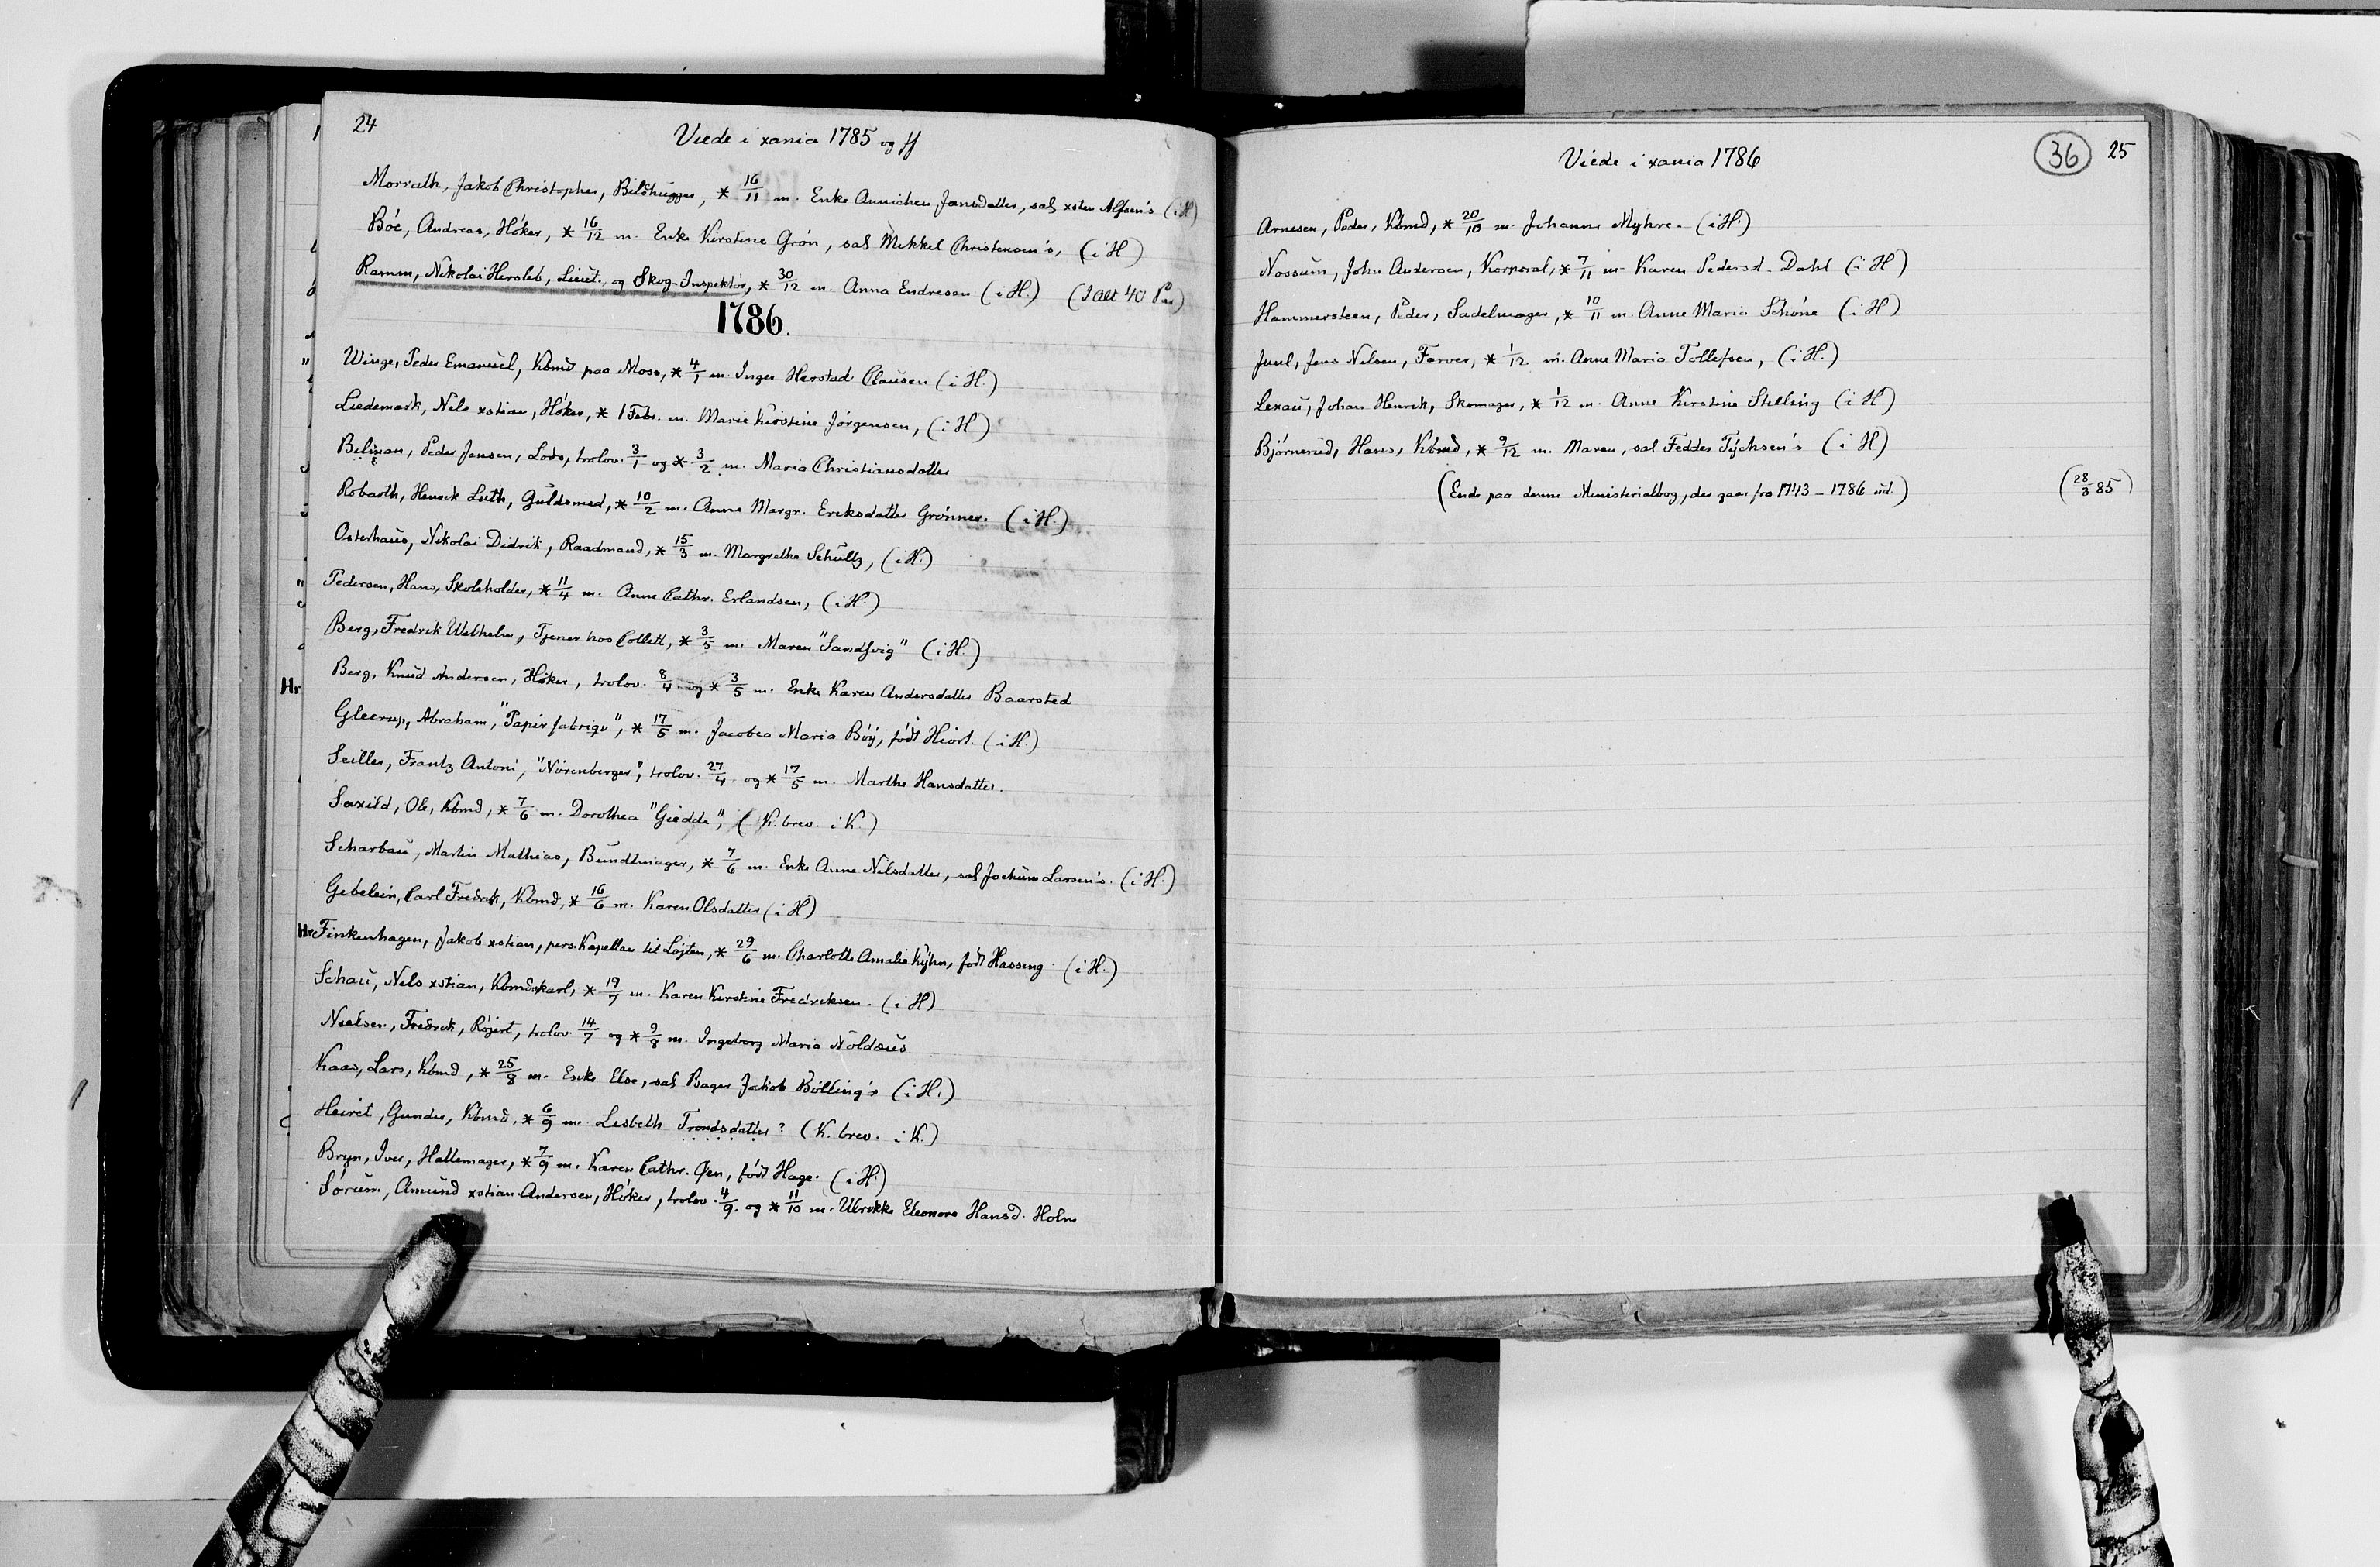 24
Viede i xania 1785 og ff
Morrath, Jakob Christopher, Bildhugger, * 16/11 m. Enke Annichen Jansdatter, sal xsten Alfsen's (i H)
Bóe, Andreas, Hóker, * 16/12 m. Enke Kirstine Grón, sal Mikkel Christensen's, (i H)
Ramm, Nikolai Hersleb, Lieut. og Skog-Inspektór, * 30/12 m. Anna Endresen (i H.) (I alt 40 Par)
1786.
" Winge, Peder Emanuel, Kbmd paa Moss, * 4/1 m. Inger Herstad Clausen (i H.)
Liedemark, Nils xstian, Hóker, * 1 Febr. m. Marie Kirstine Jórgensen, (i H)
Peder Jensen, Lods, trolov. 3/1 og * 3/2 m. Maria Christiansdatter
Robarth, Henrik Luth, Guldsmed, * 10/2 m. Anna Margr. Eriksdatter Grónner. (i H.)
Osterhaus, Nikolai Didrik, Raadmand, * 15/3 m. Margrethe Schultz, (i H.)
" Pedersen, Hans, Skoleholder, * 11/4 m. Anne Cathr. Erlandsen, (i H.)
Berg, Fredrik Wilhelm, Tjener hos Collett, * 3/5 m. Maren "Sandfvig" (i H.)
Hr Berg, Knud Andersen, Hóker, trolov. 8/4 og * 3/5 m. Enke Karen Andersdatter Baarsted
Gleerup, Abraham, "Papirfabriqv", * 17/5 m. Jacobea Maria Bóy, fódt Hiort. (i H.)
Seiller, Frantz Antoni, "Nórenberger", trolov. 27/4 og * 17/5 m. Marthe Hansdatter.
Saxild, Ole, Kbmd, * 7/6 m. Dorothea "Giedde", (K. brev. i K.)
Scharbau, Martin Mathias, Bundtmager, * 7/6 m. Enke Anne Nilsdatter, sal Jochum Larsen's. (i H.)
Gebelein, Carl Fredrik, Kbmd, * 16/6 m. Karen Olsdatter (i H)
Hr Finkenhagen, Jakob xstian, pers. Kapellan til Lójten, * 29/6 m. Charlotte Amalie Kyhn, fódt Hassing (i H.)
Schau, Nils xstian, Kbmdskarl, * 19/7 m. Karen Kirstine Fredriksen. (i H)
Nielsen, Fredrik, trolov. 14/7 og * 9/8 m. Ingeborg Maria Noldæus
Kaas, Lars, Kbmd, * 25/8 m. Enke Else, sal Bager Jakob Bólling's (i H.)
Gunder, Kbmd, * 6/9 m. Lisbeth Trondsdatter? (K. brev. i K.)
Bryn, Iver, Hattemager, * 7/9 m. Karen Cathr. Øen, fódt Hage. (i H.)
Sórum, Amund xstian Andersen, Hóker, trolov. 4/9. og * 11/10 m. Ulrikke Eleonore Hansd. Holm
36 25
Viede i xania 1786
Arnesen, Peder, Kbmd, * 20/10 m. Johanne Myhre. (i H.)
Nossum, John Andersen, Korporal, * 7/11 m. Karen Pedersd. Dahl (i H)
Hammersteen, Peder, Sadelmager, * 10/11 m. Anne Maria Schóne (i H)
Juul, Jens Nilsen, Farver, * 1/12 m. Anne Maria Tollefsen, (i H.)
Lexau, Johan Henrik, Skomager, * 1/12 m. Anne Kirstine Stilling (i H)
Bjórnerud, Hans, Kbmd, * 9/12 m. Maren, sal Fedder Tychsen's (i H)
(Ende paa denne Ministerialbog, der gaar fra 1743 - 1786 ud.) (28/3 85)